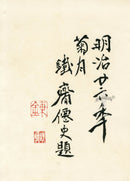 明治廿六年
菊月鐵齋僊史題